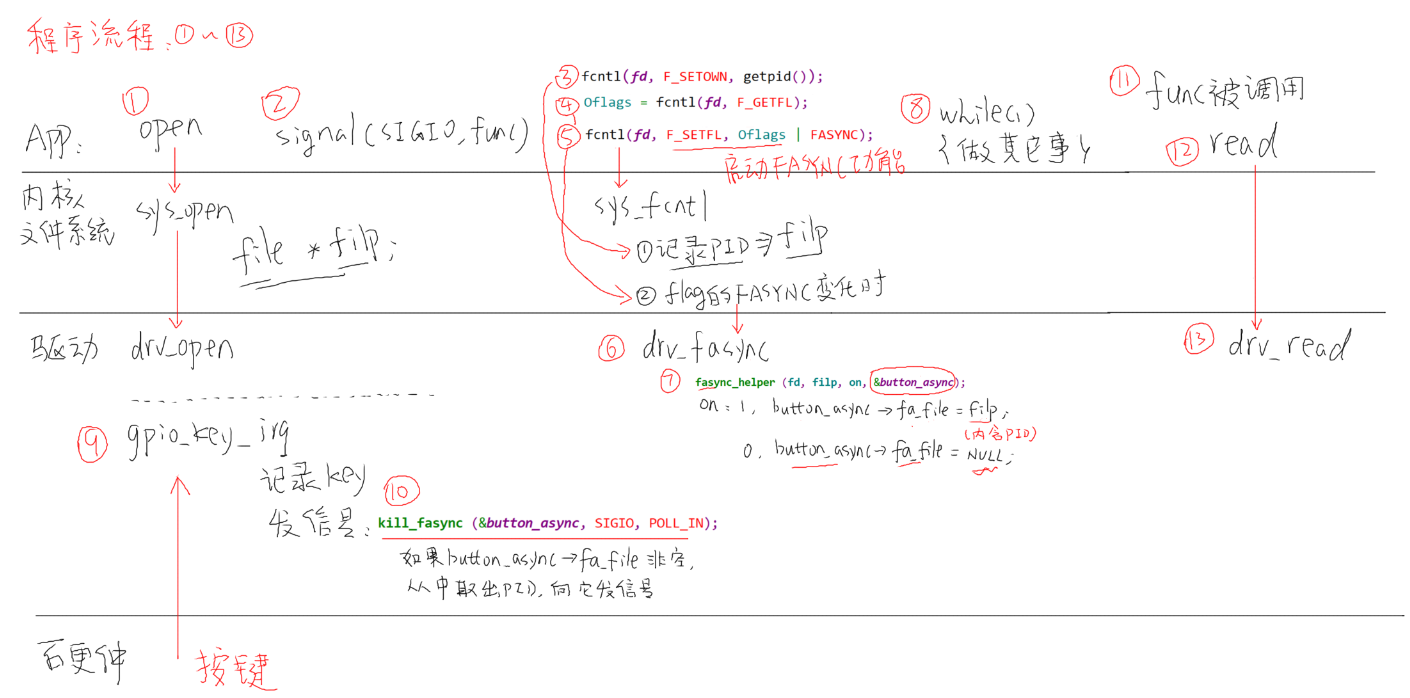 程序流程:①~⑬
App:
① open
② signal(SIGIO,func)
③ fcntl(fd, F_SETOWN, getpid());
④ Oflags = fcntl(fd, F_GETFL);
⑤ fcntl(fd, F_SETFL, Oflags | FASYNC);
启动FASYNC功能
⑧ while(1)
{做其它事}
⑪ func被调用
⑫ read
内核
文件系统
sys_open
file *filp;
sys_fcntl
①记录PID于filp
② flag的FASYNC变化时
驱动
drv_open
⑥ drv_fasync
⑦ fasync_helper (fd, filp, on, &button_async);
on:1, button_async→fa_file=filp;
(内含PID)
0, button_async→fa_file=NULL;
⑬ drv_read
⑨ gpio_key_irq
记录key
⑩
发信号: kill_fasync (&button_async, SIGIO, POLL_IN);
如果button_async→fa_file非空,
从中取出PID,向它发信号
硬件
按键